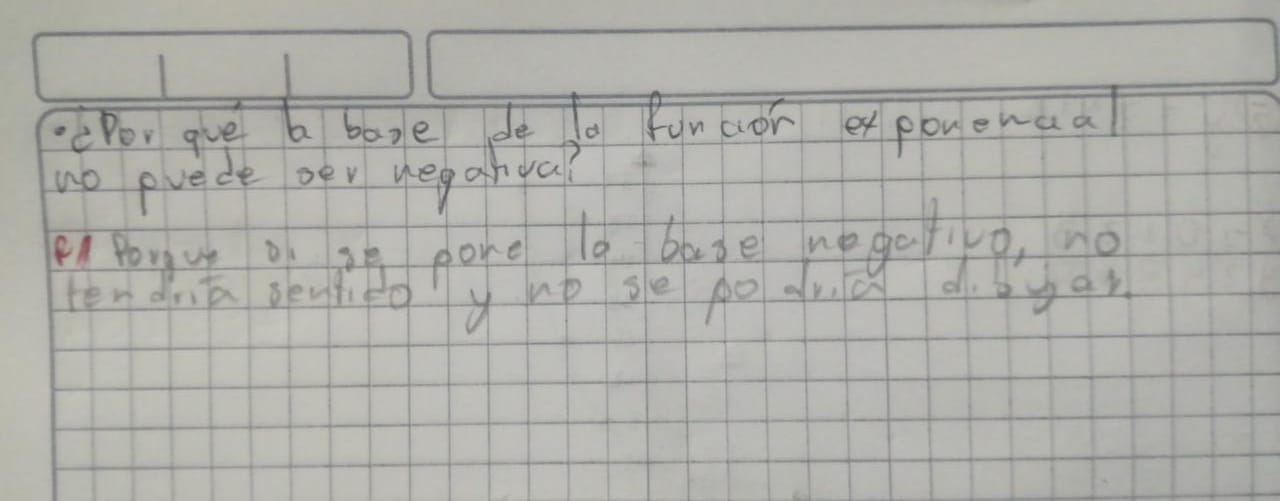 •¿Por qué la base de la función exponencial
no puede ser negativa?
R/ Porque si se pone la base negativo, no
tendría sentido y no se podría dibujar.